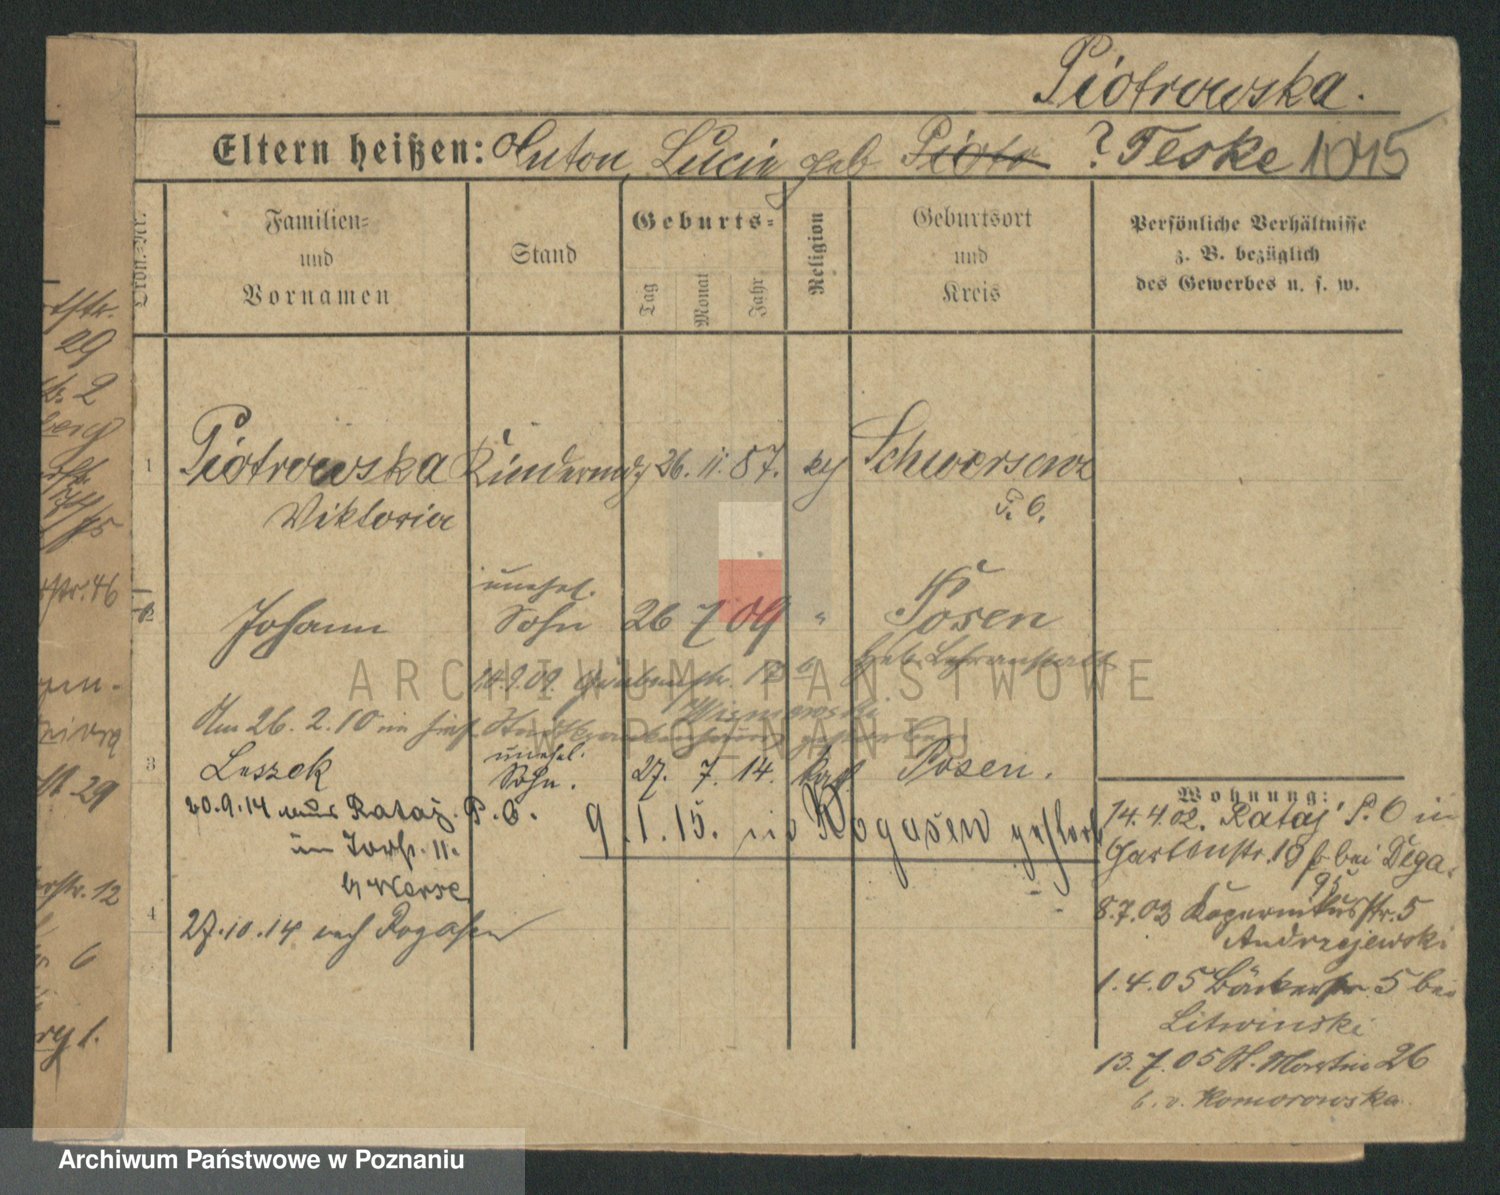 Piotrowska.
Eltern heißen: Anton, Lucie geb Piotr ? Teske 1045
Ordn.-Nr.
Familien- und Vornamen
Stand
Geburts-
Tag
Monat
Jahr
Religion
Geburtsort und Kreis
Persönliche Verhältnisse z. B. bezüglich des Gewerbes u. s. w.
1 Piotrowska Kindermdg 26. 11. 87. kg Schwersenz
Viktoria P. O.
unehel.
2 Johann Sohn 26 7 09 " Posen
Heb. Lehranstalt
14.9.09. Grabenstr.
Am 26. 2. 10 im gestorben
3 Leszek unehel. Sohn. 27. 7. 14. kath. Posen.
20.9.14 aus Rataj. P. O.
9.1.15. in Rogasen gestorb
im Dorfe. 11.
4 27.10.14 nach Rogasen
Wohnung:
14.4.02. Rataj P. O in
Gartenstr. 18 b bei Dega.
8.7.03 Kopernikusstr. 5
Andrzejewski
1.4.05 Bäckerstr 5 bei
Litwinski
13.7.05 St. Martin 26
b. v. Komorowska.
29
2
berg
75
str. 46
29
str. 12
6
1.
ARCHIWUM PAŃSTWOWE
W POZNANIU
Archiwum Państwowe w Poznaniu